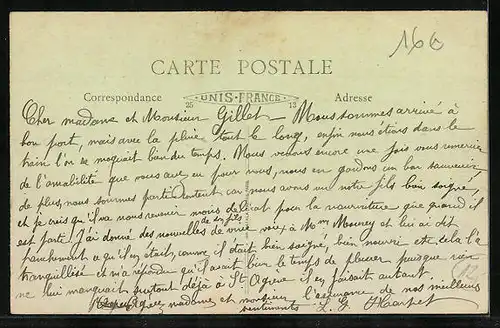 160
CARTE POSTALE
Correspondance 25 UNIS-FRANCE 13 Adresse
Cher madame et Monsieur Gillet - Nous sommes arrivé à
bon port, mais avec la pluie tout le long, enfin nous étions dans le
train l'on se moquait bien du temps. Nous venons encore une fois vous remercier
de l'amabilité que vous avez eu pour nous, nous en gardons un bon souvenir
de plus, nous sommes parti content car nous avons vu notre fils bien soigné,
et je crois qu'il va nous revenir pour la nourriture que quand il
est parti. J'ai donné des nouvelles de son fils de vive voix à Mme et lui ai dit
franchement a qu'il en était, comme il était bien soigné, bien nourri et cela l'a
tranquillisé et m'a répondu qu'il avait bien le temps de pleurer puisque rien
ne lui manquait surtout déjà à St Ogère il en faisait autant.
12
madame et monsieur l'assurance de nos meilleurs
sentiments